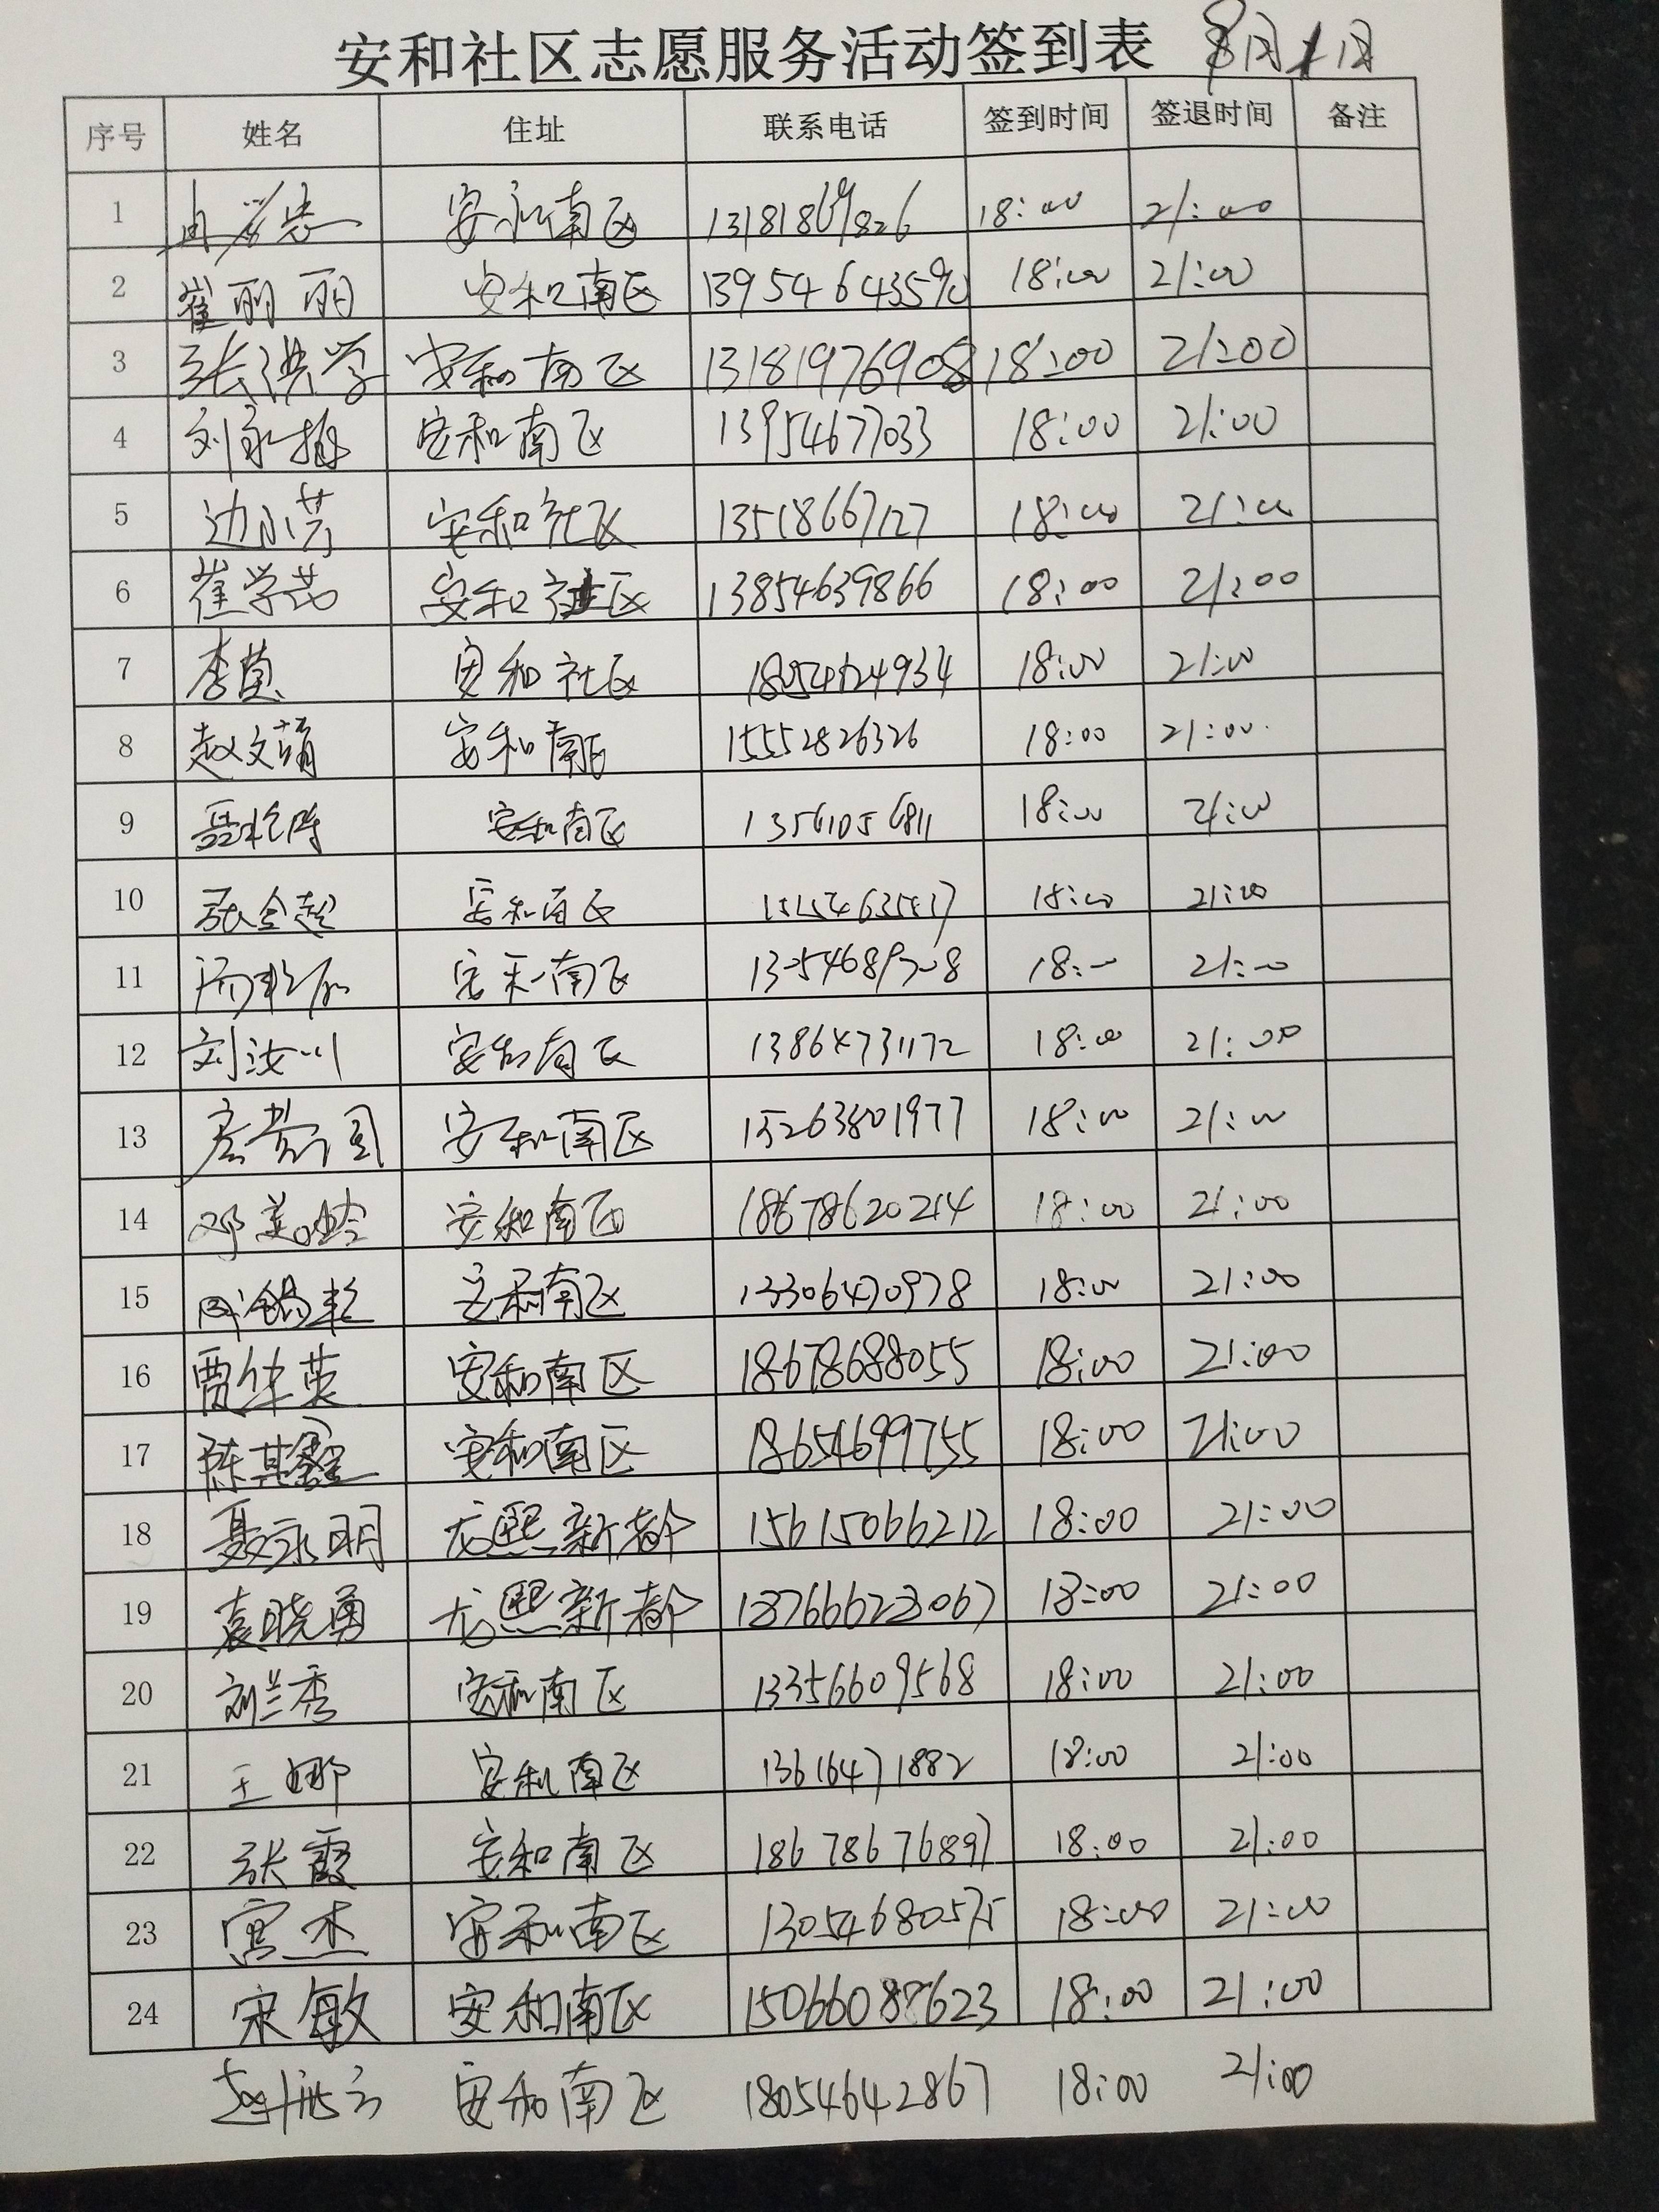 安和社区志愿服务活动签到表 8月1日
序号 姓名 住址 联系电话 签到时间 签退时间 备注
1 安和南区 13181869826 18:00 21:00
2 崔丽丽 安和南区 13954643590 18:00 21:00
3 张洪学 安和南区 13181976908 18:00 21:00
4 刘永梅 安和南区 13954677033 18:00 21:00
5 边小芳 安和社区 13518667127 18:00 21:00
6 崔学芬 安和社区 13854639866 18:00 21:00
7 李莫 安和社区 18054624934 18:00 21:00
8 赵文娟 安和南区 15552826326 18:00 21:00
9 安和南区 13561056811 18:00 21:00
10 张全超 安和南区 18:00 21:00
11 安和南区 18:00 21:00
12 刘汝川 安和南区 13864731172 18:00 21:00
13 安和南区 15263801977 18:00 21:00
14 邓美玲 安和南区 18678620214 18:00 21:00
15 安和南区 13306470978 18:00 21:00
16 贾华英 安和南区 18678688055 18:00 21:00
17 陈其鑫 安和南区 18654699755 18:00 21:00
18 聂永明 龙熙新都 15615066212 18:00 21:00
19 袁晓勇 龙熙新都 18766623067 18:00 21:00
20 刘兰秀 安和南区 13356609568 18:00 21:00
21 王娜 安和南区 13616471882 18:00 21:00
22 张霞 安和南区 18678676897 18:00 21:00
23 宫杰 安和南区 13054680575 18:00 21:00
24 宋敏 安和南区 15066088623 18:00 21:00
安和南区 18054642867 18:00 21:00